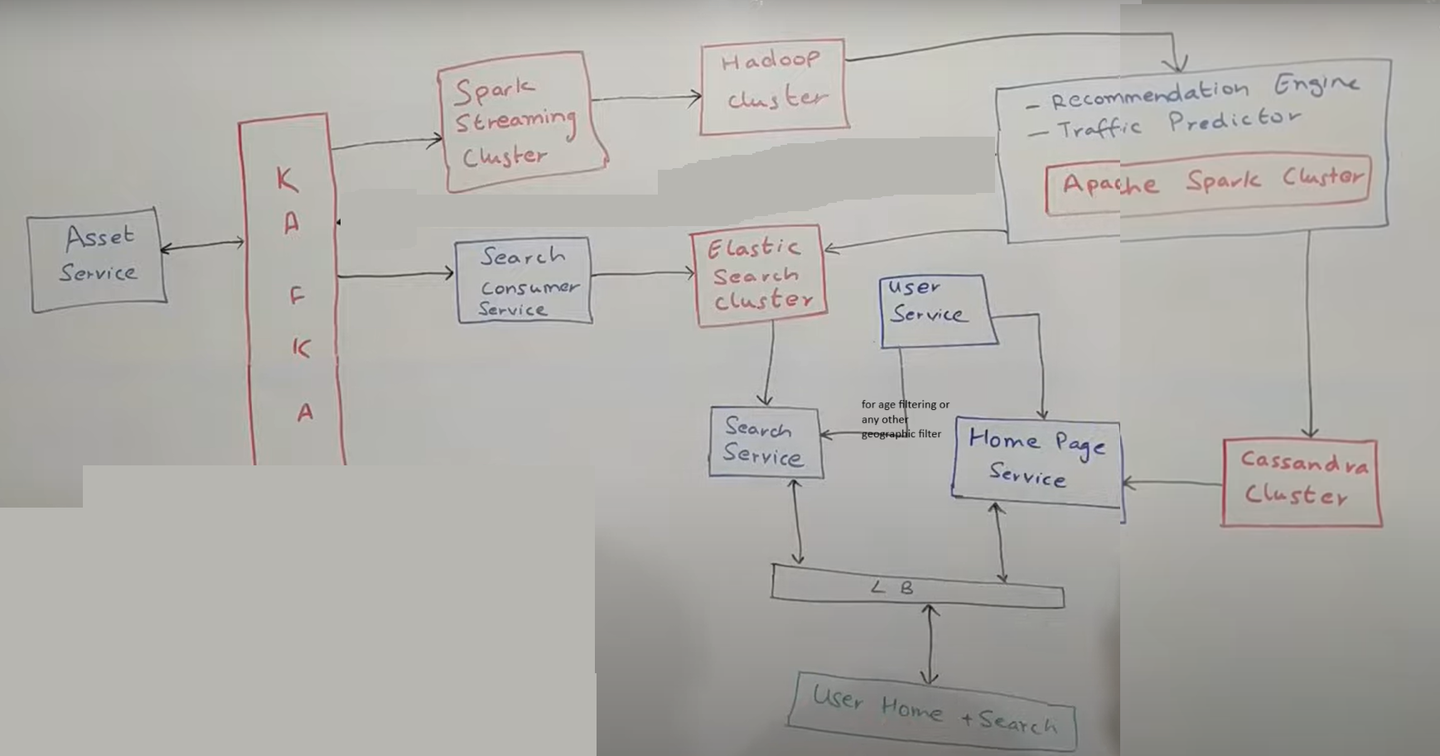 Hadoop
cluster
Spark
Streaming
Cluster
- Recommendation Engine
- Traffic Predictor
Apache Spark Cluster
K
A
F
K
A
Asset
Service
Search
Consumer
Service
Elastic
Search
Cluster
User
Service
for age filtering or
any other
geographic filter
Search
Service
Home Page
Service
Cassandra
Cluster
L B
User Home + Search